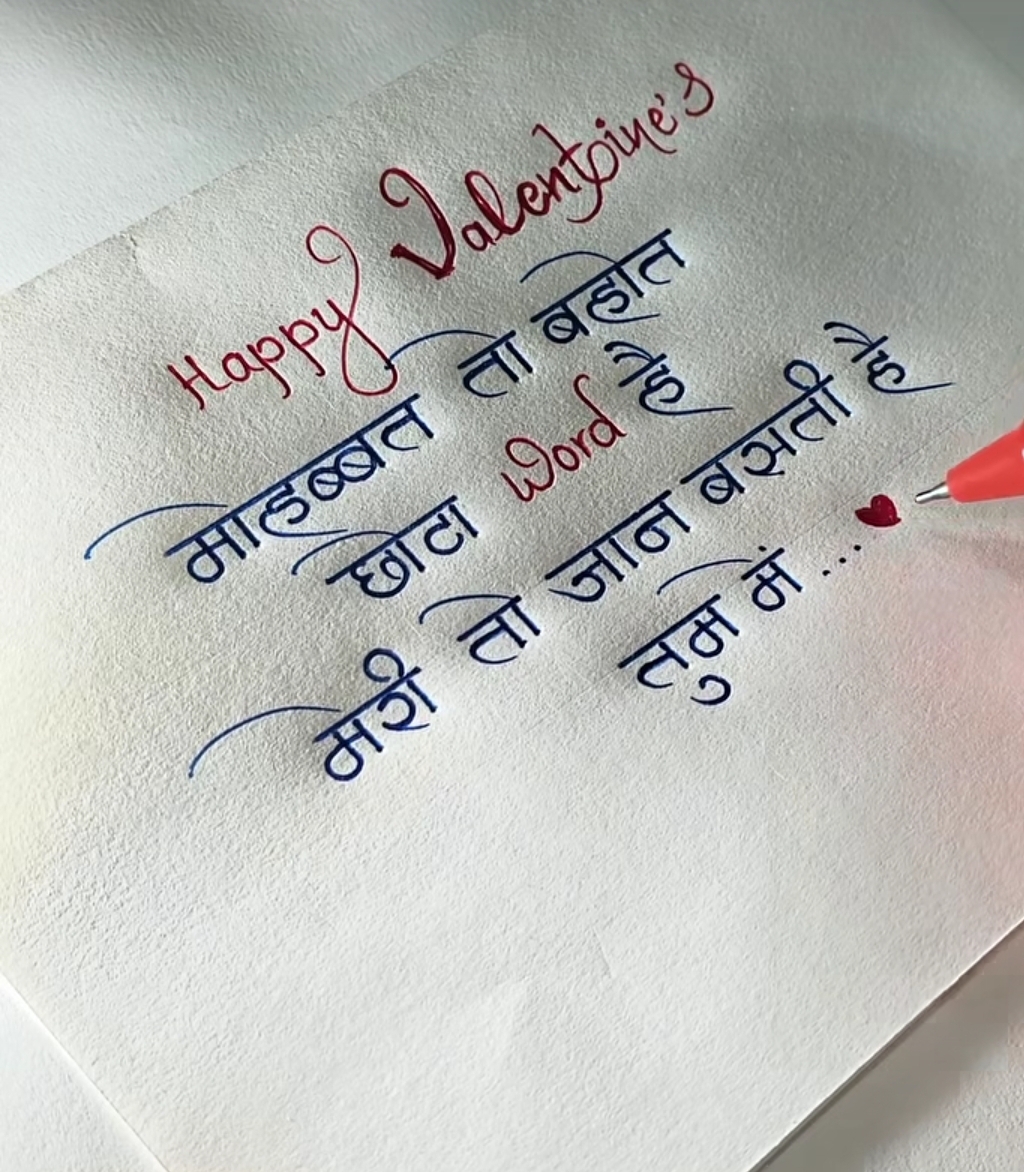 Happy Valentine's
मोहब्बत तो बहोत
छोटा Word है
मेरी तो जान बसती है
तुम में...